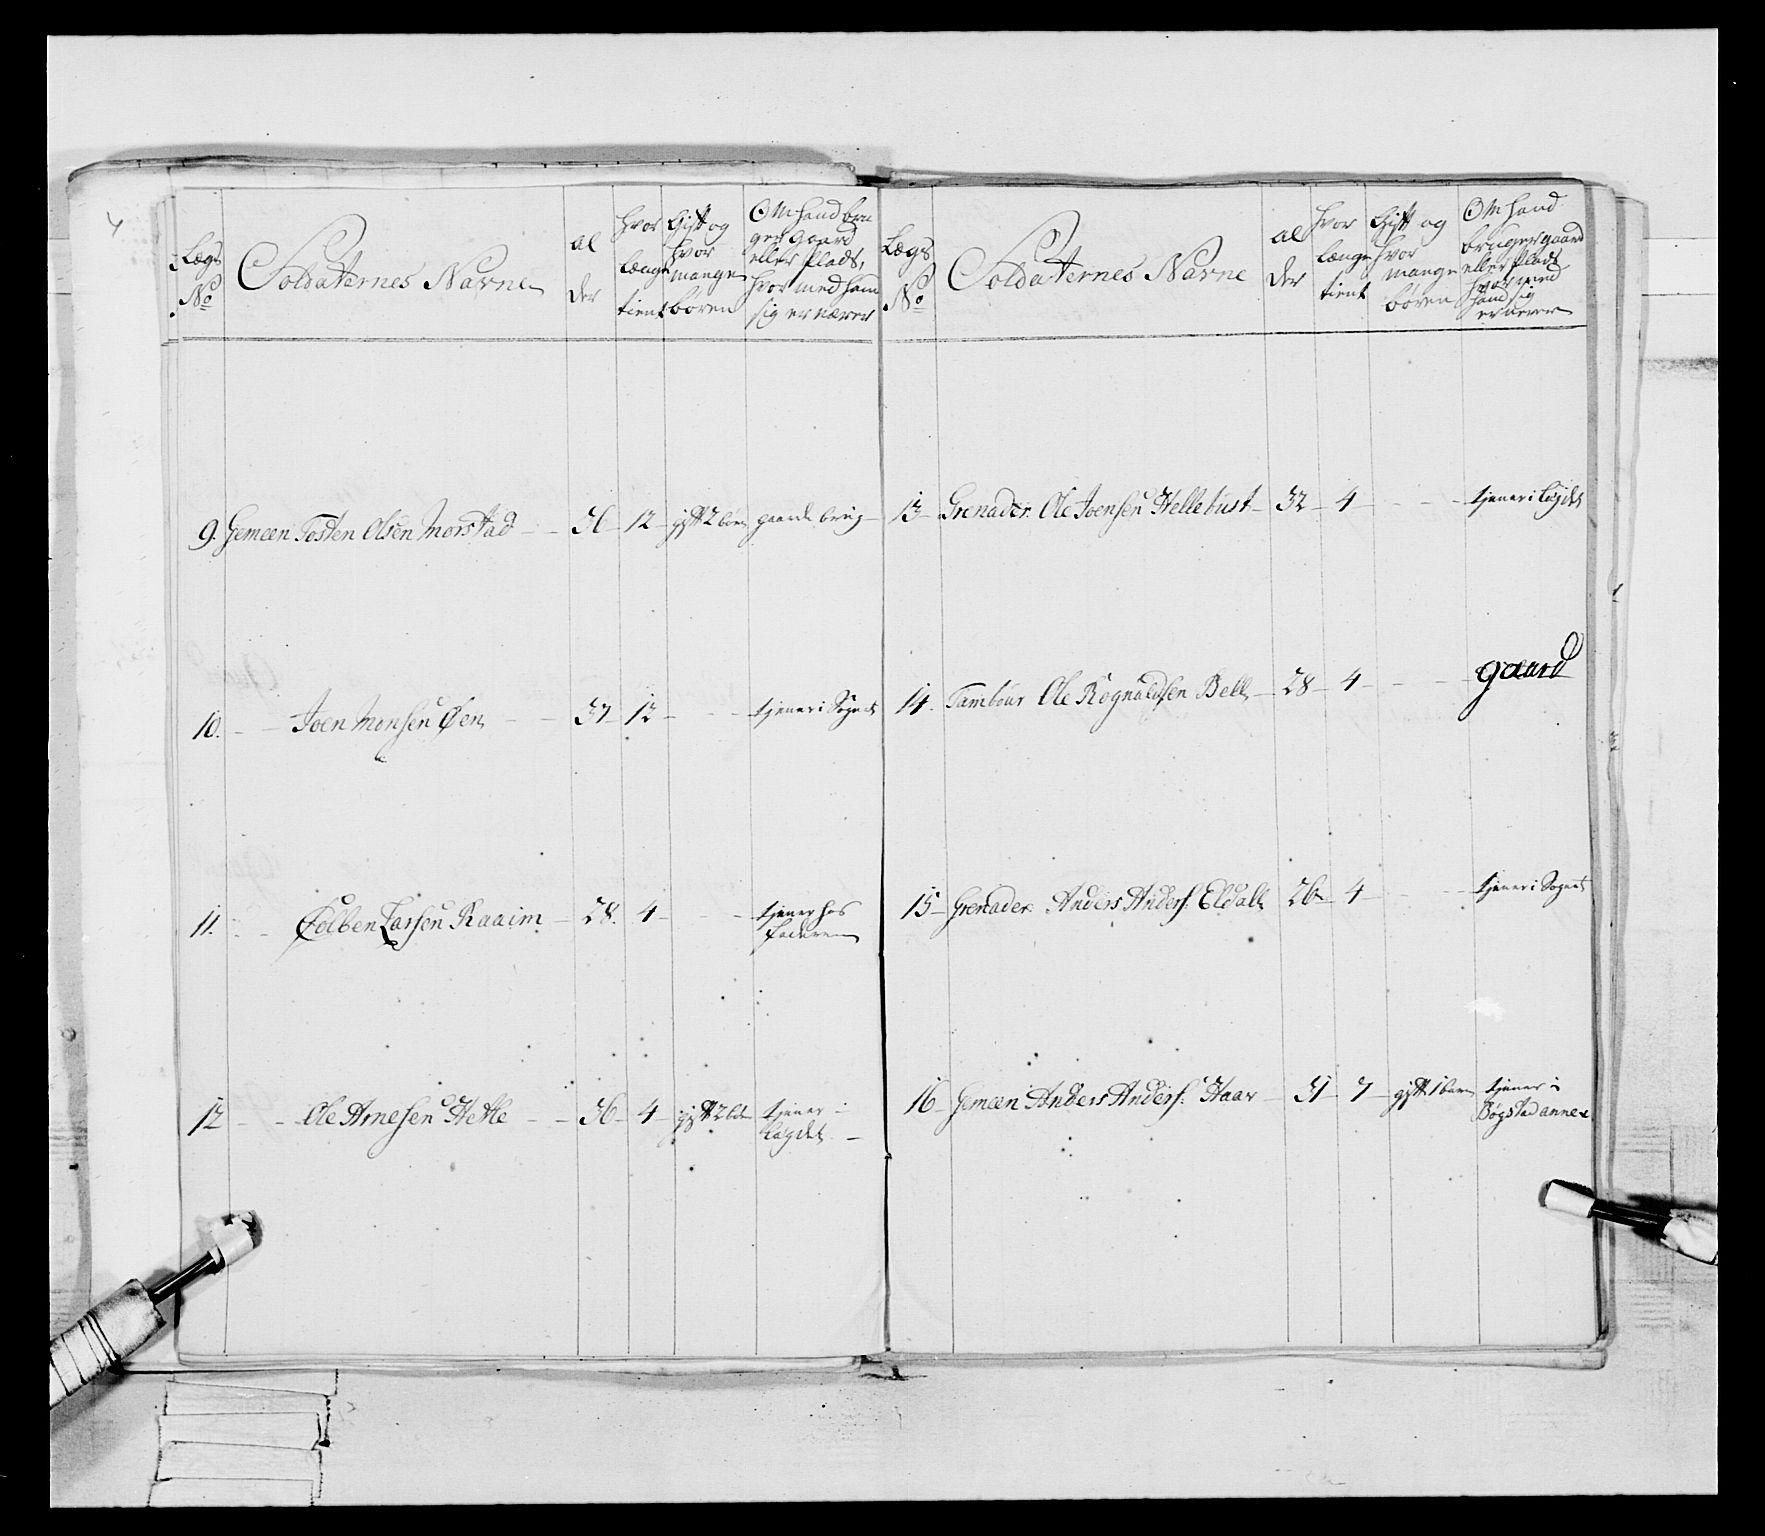 Lægs No
Soldaternes Navne
al der
hvor længe tient
Gift og hvor mange börn
Om hand bru
ger gaard
eller Plads,
hvor med ham
sig ernærer
9. Gemeen Tosten Olsen Morstad - 36 - 12 - gift 2 börn gaards brug -
10. - - Joen Monsen Øen - - 37 - 12 - - - tjener i Sognet
11. - - Colben Larsen Raaim - 28. 4 - - tjener hos
Faderen
12 - - Ole Arnesen Hetle - - 36 - 4 - gift 2 b. tjener i
Lægdet -
Lægs No
Soldaternes Navne
al der
hvor længe tient
Gift og hvor mange börn
Om hand
bruger gaard
eller Plads
hvor med
hand sig
ernerer
13 - Grenader. Ole Joensen Hellebust - 32 - 4 - - - tjener i Lægdet
14. Tambour Ole Rognaldsen Bell - 28 - 4 - - - gaard
15 - Grenader. Anders Anders. Eldall 26 - 4 - - tjener i Sognet
16 - Gemeen Anders Anders. Haar - 31 - 7 - gift 1 barn tjener i
Bøgstad annex